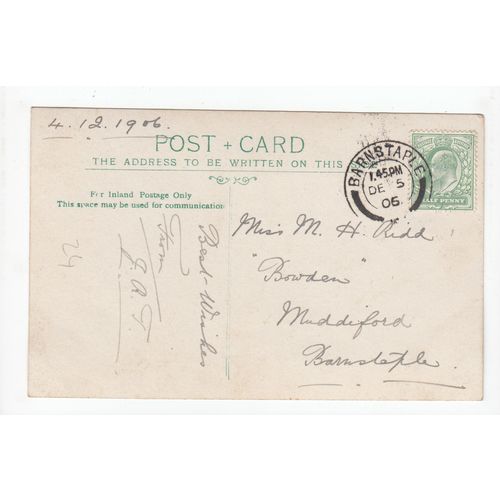 4.12.1906.
POST + CARD
THE ADDRESS TO BE WRITTEN ON THIS
For Inland Postage Only
This space may be used for communication
BARNSTAPLE
1.45 PM
DE 5
06
HALF PENNY
Best Wishes
From
J. A. T.
24
Miss M. H. Ridd
"Bowden"
Muddiford
Barnstaple.